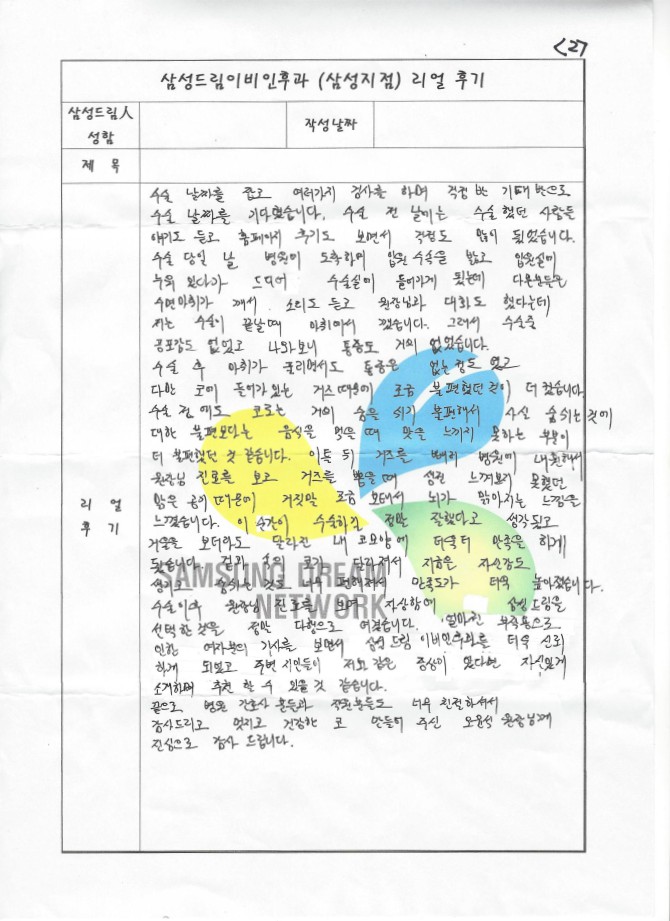 <27
삼성드림이비인후과 (삼성지점) 리얼 후기
삼성드림人
성함
작성날짜
제 목
리 얼
후 기
수술 날짜를 잡고 여러가지 검사를 하며 걱정 반 기대 반으로
수술 날짜를 기다렸습니다. 수술 전 날에는 수술했던 사람들
얘기도 듣고 홈페이지 후기도 보면서 걱정도 많이 됬었습니다.
수술 당일 날 병원에 도착하여 입원 수속을 밟고 입원실에
누워 있다가 드디어 수술실에 들어가게 됬는데 다른분들은
수면마취가 깨서 소리도 듣고 원장님과 대화도 했다는데
저는 수술이 끝날때 마취에서 깼습니다. 그래서 수술중
공포감도 없었고 나와보니 통증도 거의 없었습니다.
수술 후 마취가 풀리면서도 통증은 없는정도 였고
다만 코에 들어가 있는 거즈때문에 조금 불편했던 것이 더 컸습니다
수술 전에도 코로는 거의 숨을 쉬기 불편해서 사실 숨쉬는 것에
대한 불편보다는 음식을 먹을 때 맛을 느끼지 못하는 부분이
더 불편했던 것 같습니다. 이틀 뒤 거즈를 빼러 병원에 내원해서
원장님 진료를 보고 거즈를 뽑을때 생전 느껴보지 못했던
맑은 공기 때문에 거짓말 조금 보태서 뇌가 맑아지는 느낌을
느꼈습니다. 이 순간이 수술하길 정말 잘했다고 생각됬고
거울을 보더라도 달라진 내 코모양에 더욱더 만족을 하게
됬습니다. 겉과 속의 코가 달라져서 지금은 자신감도
생기고 숨쉬는것도 너무 편해져서 만족도가 더욱 높아졌습니다.
수술이후 원장님 진료를 보면 자상함에 삼성드림을
선택한것을 정말 다행으로 여겼습니다. 얼마전 부작용으로
인한 여자분의 기사를 보면서 삼성드림 이비인후과를 더욱 신뢰
하게 되었고 주변 지인들이 저와 같은 증상이 있다면 자신있게
소개하며 추천 할 수 있을 것 같습니다.
끝으로 병원 간호사 분들과 직원분들도 너무 친절하셔서
감사드리고 멋지고 건강한 코 만들어 주신 오용석 원장님께
진심으로 감사 드립니다.
SAMSUNG DREAM
NETWORK